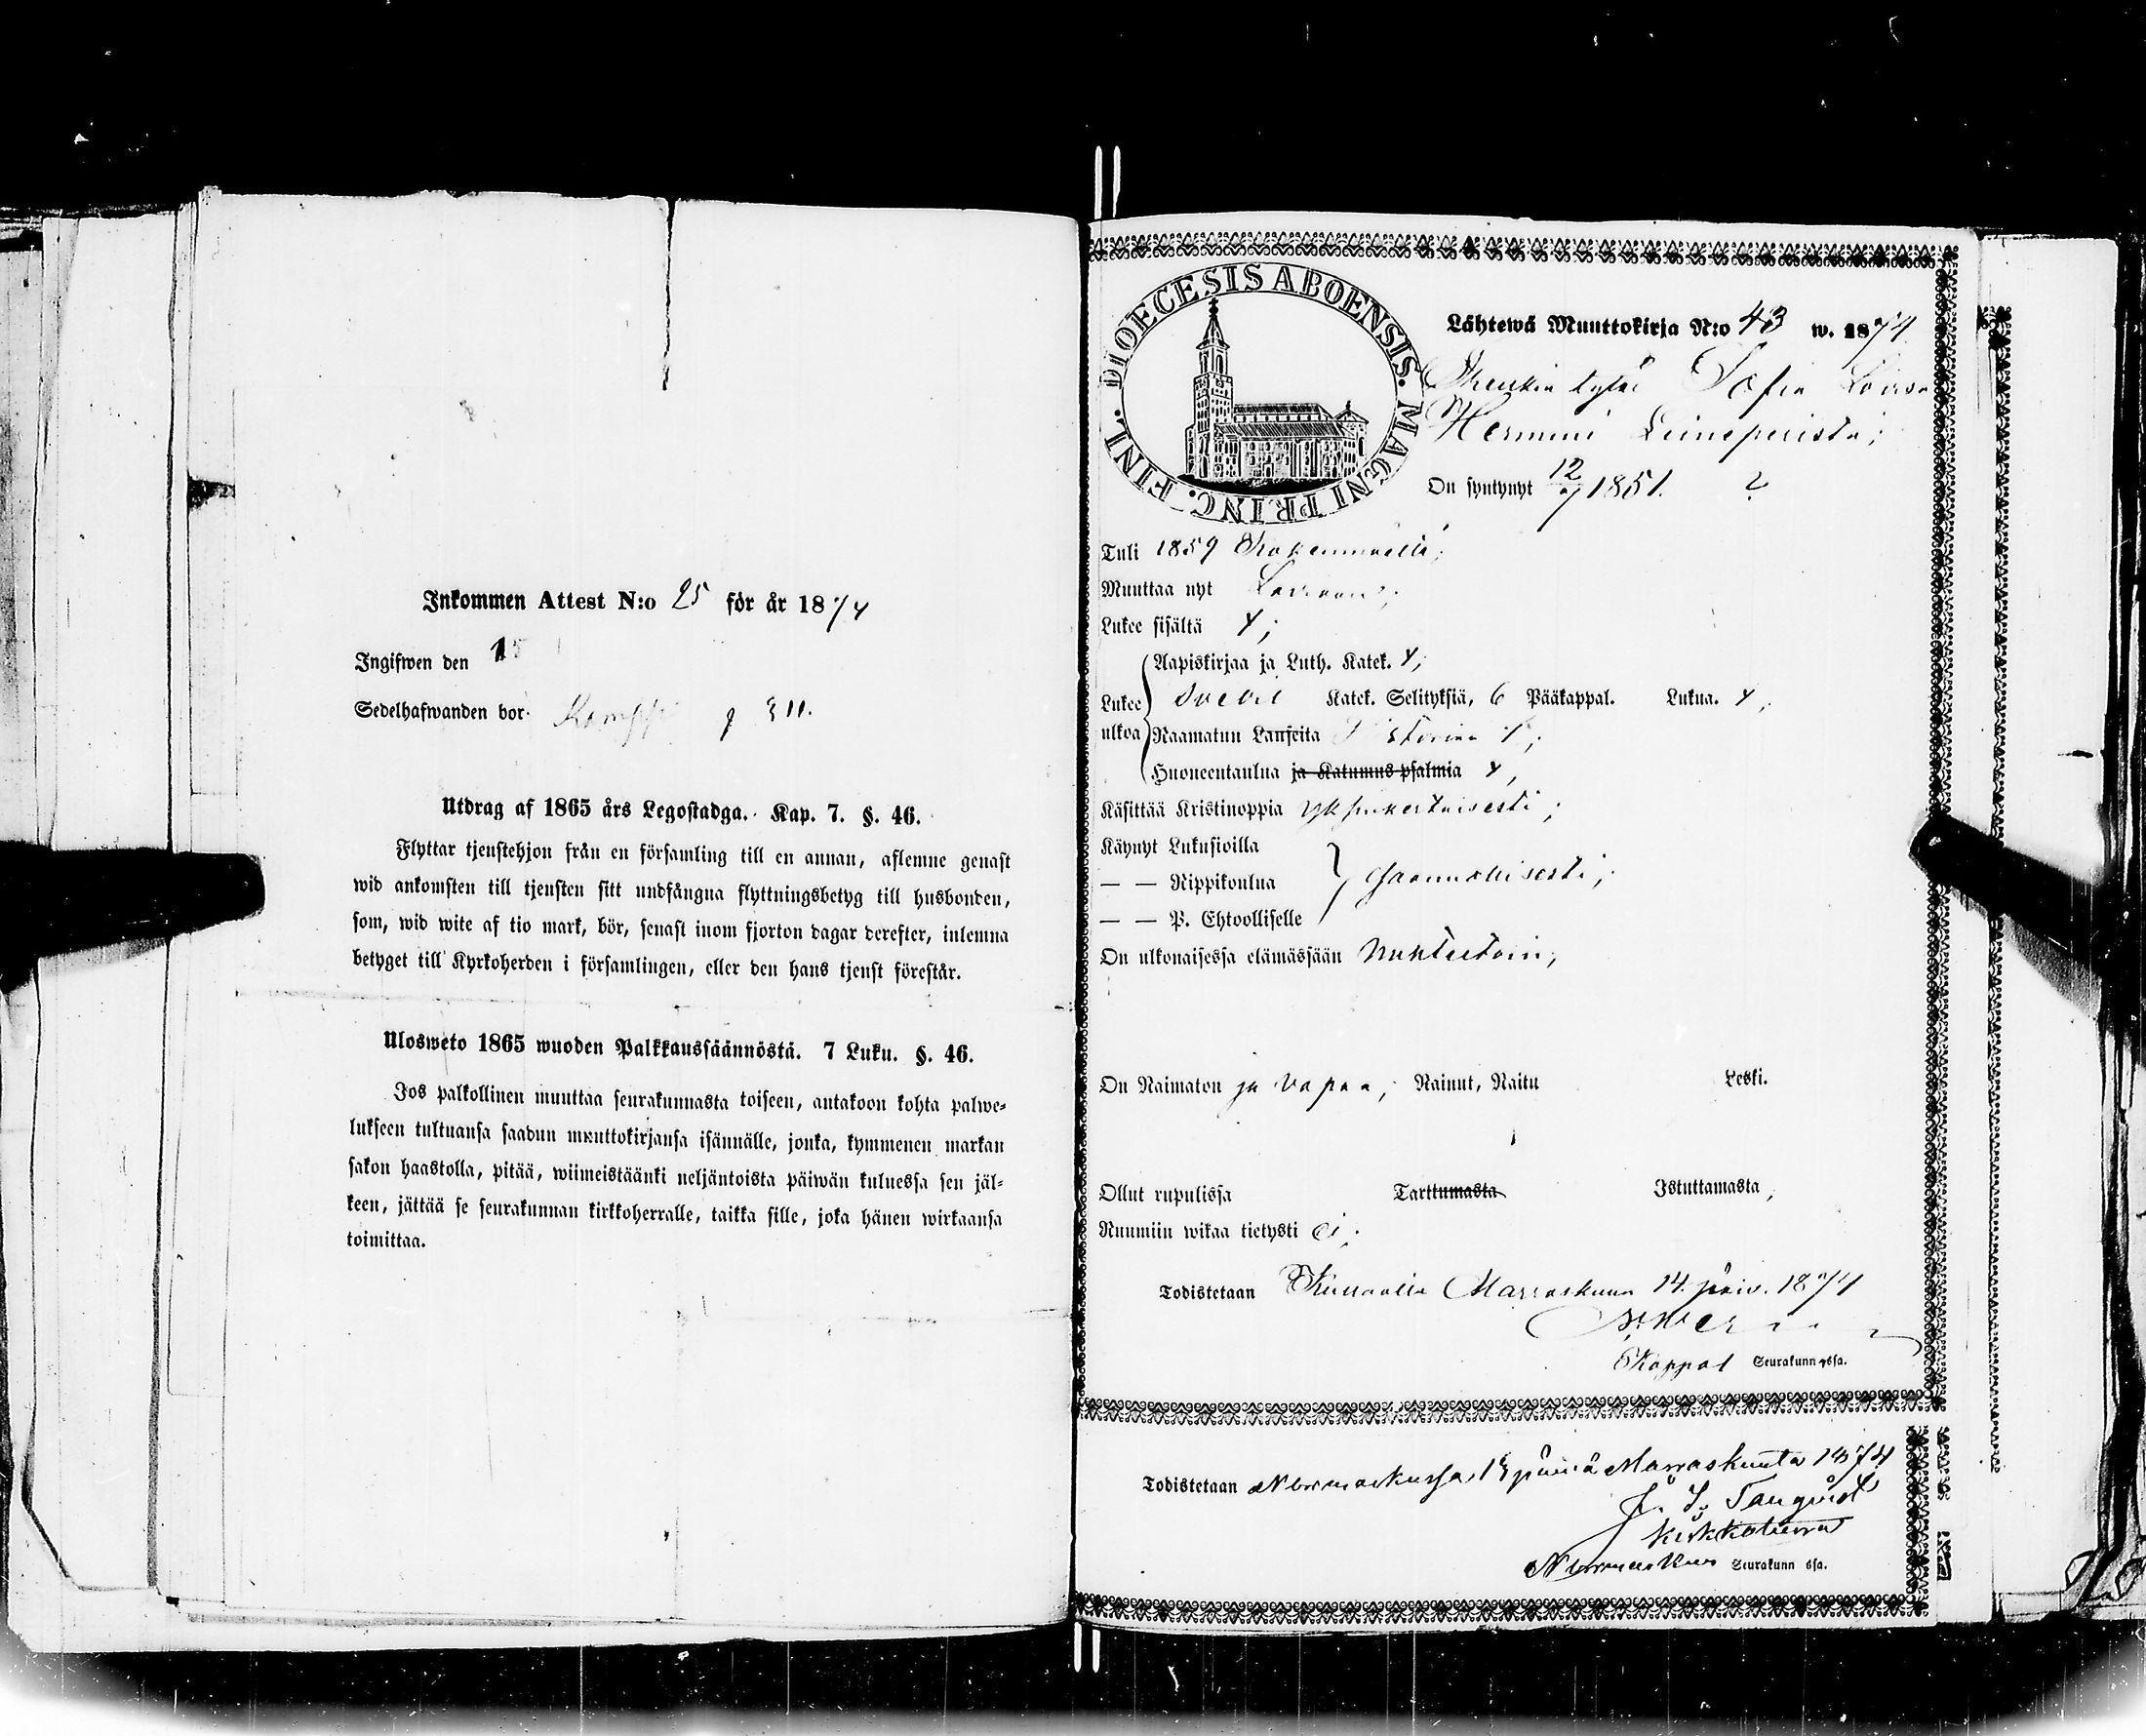 Inkommen Attest N:o 25 för år 1874
Ingifwen den 15
Sedelhafwanden bor 311.
Utdrag af 1865 års Legostadga. Kap. 7. §. 46.
Flyttar tjenstehjon från en församling till en annan, aflemne genast
wid ankomsten till tjensten sitt undfångna flyttningsbetyg till husbonden,
som, wid wite af tio mark, bör, senast inom fjorton dagar derefter, inlemna
betyget till Kyrkoherden i församlingen, eller den hans tjenst förestår.
Ulosweto 1865 wuoden Palkkaussäännöstä. 7 Luku. §. 46.
Jos palkollinen muuttaa seurakunnasta toiseen, antakoon kohta palwe-
lukseen tultuansa saadun muuttokirjansa isännälle, jonka, kymmenen markan
sakon haastolla, pitää, wiimeistäänki neljäntoista päiwän kuluessa sen jäl-
keen, jättää se seurakunnan kirkkoherralle, taikka sille, joka hänen wirkaansa
toimittaa.
DIOECESIS ABOENSIS. MAGNI PRINC. FINL.
Lähtewä Muuttokirja N:o 43 w. 1874
tytär Sofia Lovisa
Hermini Leineperistä;
On syntynyt 12/7 1851. ?
Tuli 1859
Muuttaa nyt
Lukee sisältä Y;
Lukee ulkoa
Aapiskirjaa ja Luth. Katek. Y;
Svebil Katek. Selityksiä, 6 Pääkappal. Lukua. Y;
Raamatun Lauseita Historiaa Y;
Huoneentaulua ja Katumus-psalmia Y,
Käsittää Kristinoppia yksinkertaisesti;
Käynyt Lukusioilla
— — Rippikoulua saannollisesti;
— — P. Ehtoollisella
On ulkonaisessa elämässään nuhteetoin;
On Naimaton ja vapaa; Nainut, Naitu Leski.
Ollut rupulissa Tarttumasta Istuttamasta,
Ruumiin wikaa tietysti ei;
Todistetaan Marraskuun 14. päiv. 1874
Kappal Seurakunnassa.
Todistetaan Normarkussa 15 päivä Marraskuuta 1874
J. I. Tanqvist
Kirkkoherra
Normarkun Seurakunnassa.